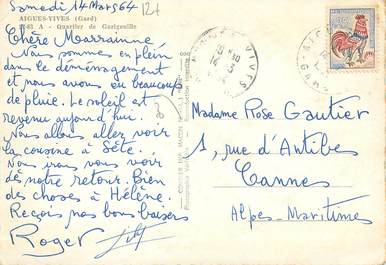 Samedi 14 Mars 64
AIGUES-VIVES (Gard)
A - Quartier de Garigouille
Chère Marrainne
Nous sommes en plein
dans le déménagement
et nous avons eu beaucoup
de pluie. Le soleil est
revenu aujourd'hui.
Nous allons aller voir
la cousine à Sète.
Nous irons vous voir
dès notre retour. Bien
des choses à Hélène.
Reçois nos bons baisers
Roger
Madame Rose Gautier
1, rue d'Antibes
Cannes
Alpes-Maritimes